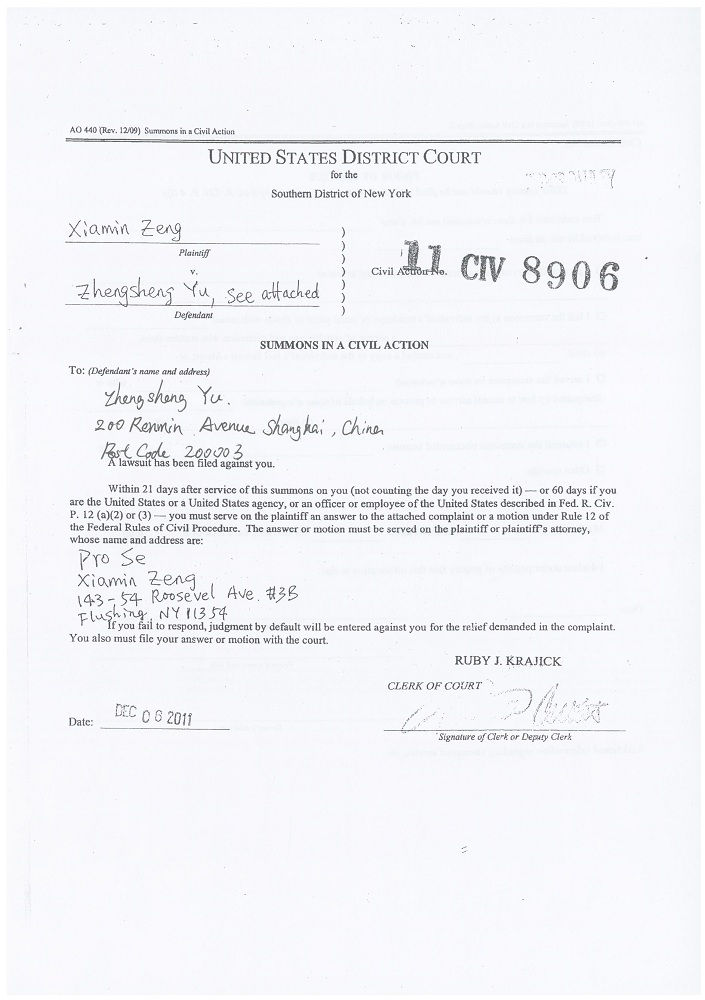 AO 440 (Rev. 12/09) Summons in a Civil Action
UNITED STATES DISTRICT COURT
for the
Southern District of New York
Xiamin Zeng
Plaintiff
v.
Zhengsheng Yu, see attached
Defendant
)
)
)
)
)
)
)
Civil Action No.
11 CIV 8906
SUMMONS IN A CIVIL ACTION
To: (Defendant's name and address)
Zhengsheng Yu.
200 Renmin Avenue Shanghai, China
Post Code 200003
A lawsuit has been filed against you.
Within 21 days after service of this summons on you (not counting the day you received it) — or 60 days if you
are the United States or a United States agency, or an officer or employee of the United States described in Fed. R. Civ.
P. 12 (a)(2) or (3) — you must serve on the plaintiff an answer to the attached complaint or a motion under Rule 12 of
the Federal Rules of Civil Procedure. The answer or motion must be served on the plaintiff or plaintiff's attorney,
whose name and address are:
Pro Se
Xiamin Zeng
143-54 Roosevel Ave. #3B
Flushing, NY 11354
If you fail to respond, judgment by default will be entered against you for the relief demanded in the complaint.
You also must file your answer or motion with the court.
RUBY J. KRAJICK
CLERK OF COURT
Date: DEC 06 2011
Signature of Clerk or Deputy Clerk